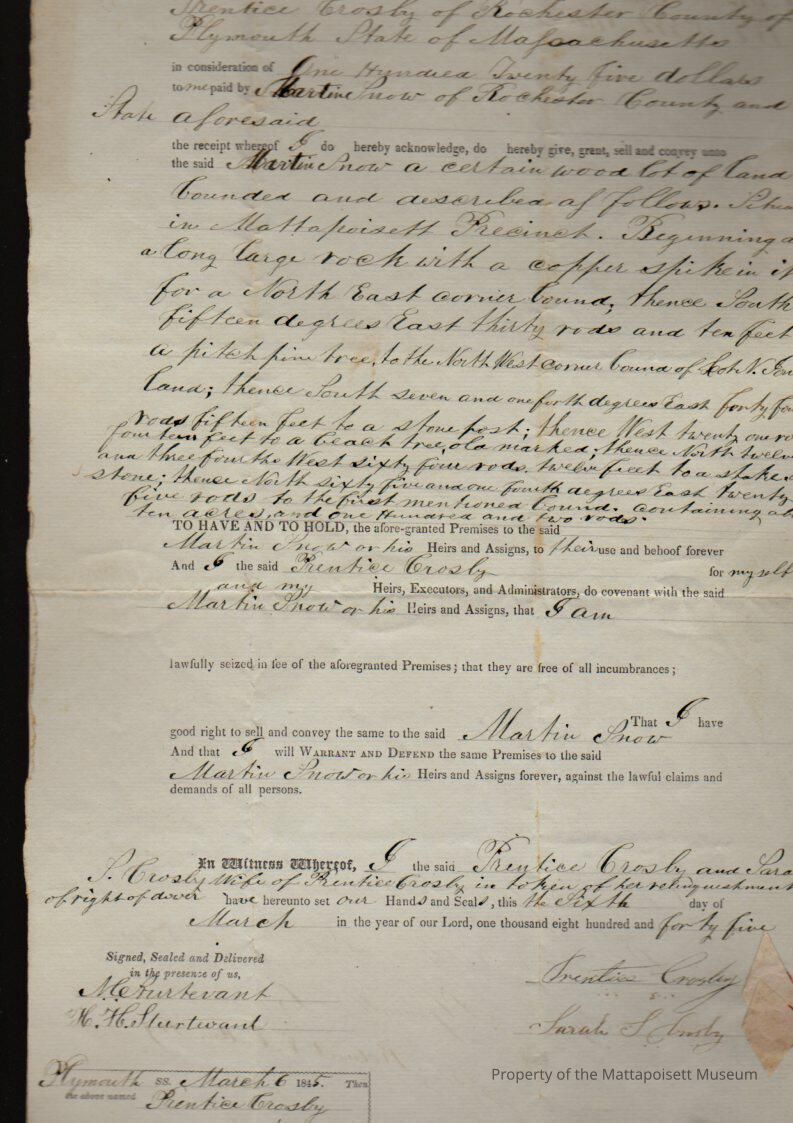 Prentice Crosby of Rochester County of
Plymouth State of Massachusetts
in consideration of One Hundred Twenty five dollars
to me paid by Martin Snow of Rochester County and
State aforesaid
the receipt whereof I do hereby acknowledge, do hereby give, grant, sell and convey unto
the said Martin Snow a certain wood lot of land
bounded and described as follows.
in Mattapoisett Precinct. Beginning
a long large rock with a copper spike in it
for a North East corner bound; thence South
fifteen degrees East thirty rods and ten feet
a pitch pine tree, to the North West corner bound of Lot N.
land; thence South seven and one forth degrees East forty
rods fifteen feet to a stone post; thence West twenty one
fourteen feet to a beach tree, old marked; thence North twelve
and three fourths West sixty four rods, twelve feet to a stake
stone; thence North sixty five and one fourth degrees East twenty
five rods to the first mentioned bound. containing
ten acres, and one Hundred and two rods.
TO HAVE AND TO HOLD, the afore-granted Premises to the said
Martin Snow or his Heirs and Assigns, to their use and behoof forever
And I the said Prentice Crosby for myself
and my Heirs, Executors, and Administrators, do covenant with the said
Martin Snow or his Heirs and Assigns, that I am
lawfully seized in fee of the aforegranted Premises; that they are free of all incumbrances;
That I have
good right to sell and convey the same to the said Martin Snow
And that I will WARRANT AND DEFEND the same Premises to the said
Martin Snow or his Heirs and Assigns forever, against the lawful claims and
demands of all persons.
In Witness Whereof, I the said Prentice Crosby and Sara
S. Crosby Wife of Prentice Crosby in token of her relinquishment
of right of dower have hereunto set our Hands and Seals, this the Sixth day of
March in the year of our Lord, one thousand eight hundred and forty five
Signed, Sealed and Delivered
in the presence of us,
Prentice Crosby
M Sturtevant
H. H. Sturtevant
Sarah S. Crosby
Plymouth ss. March 6 1845. Then
the above named Prentice Crosby
Property of the Mattapoisett Museum